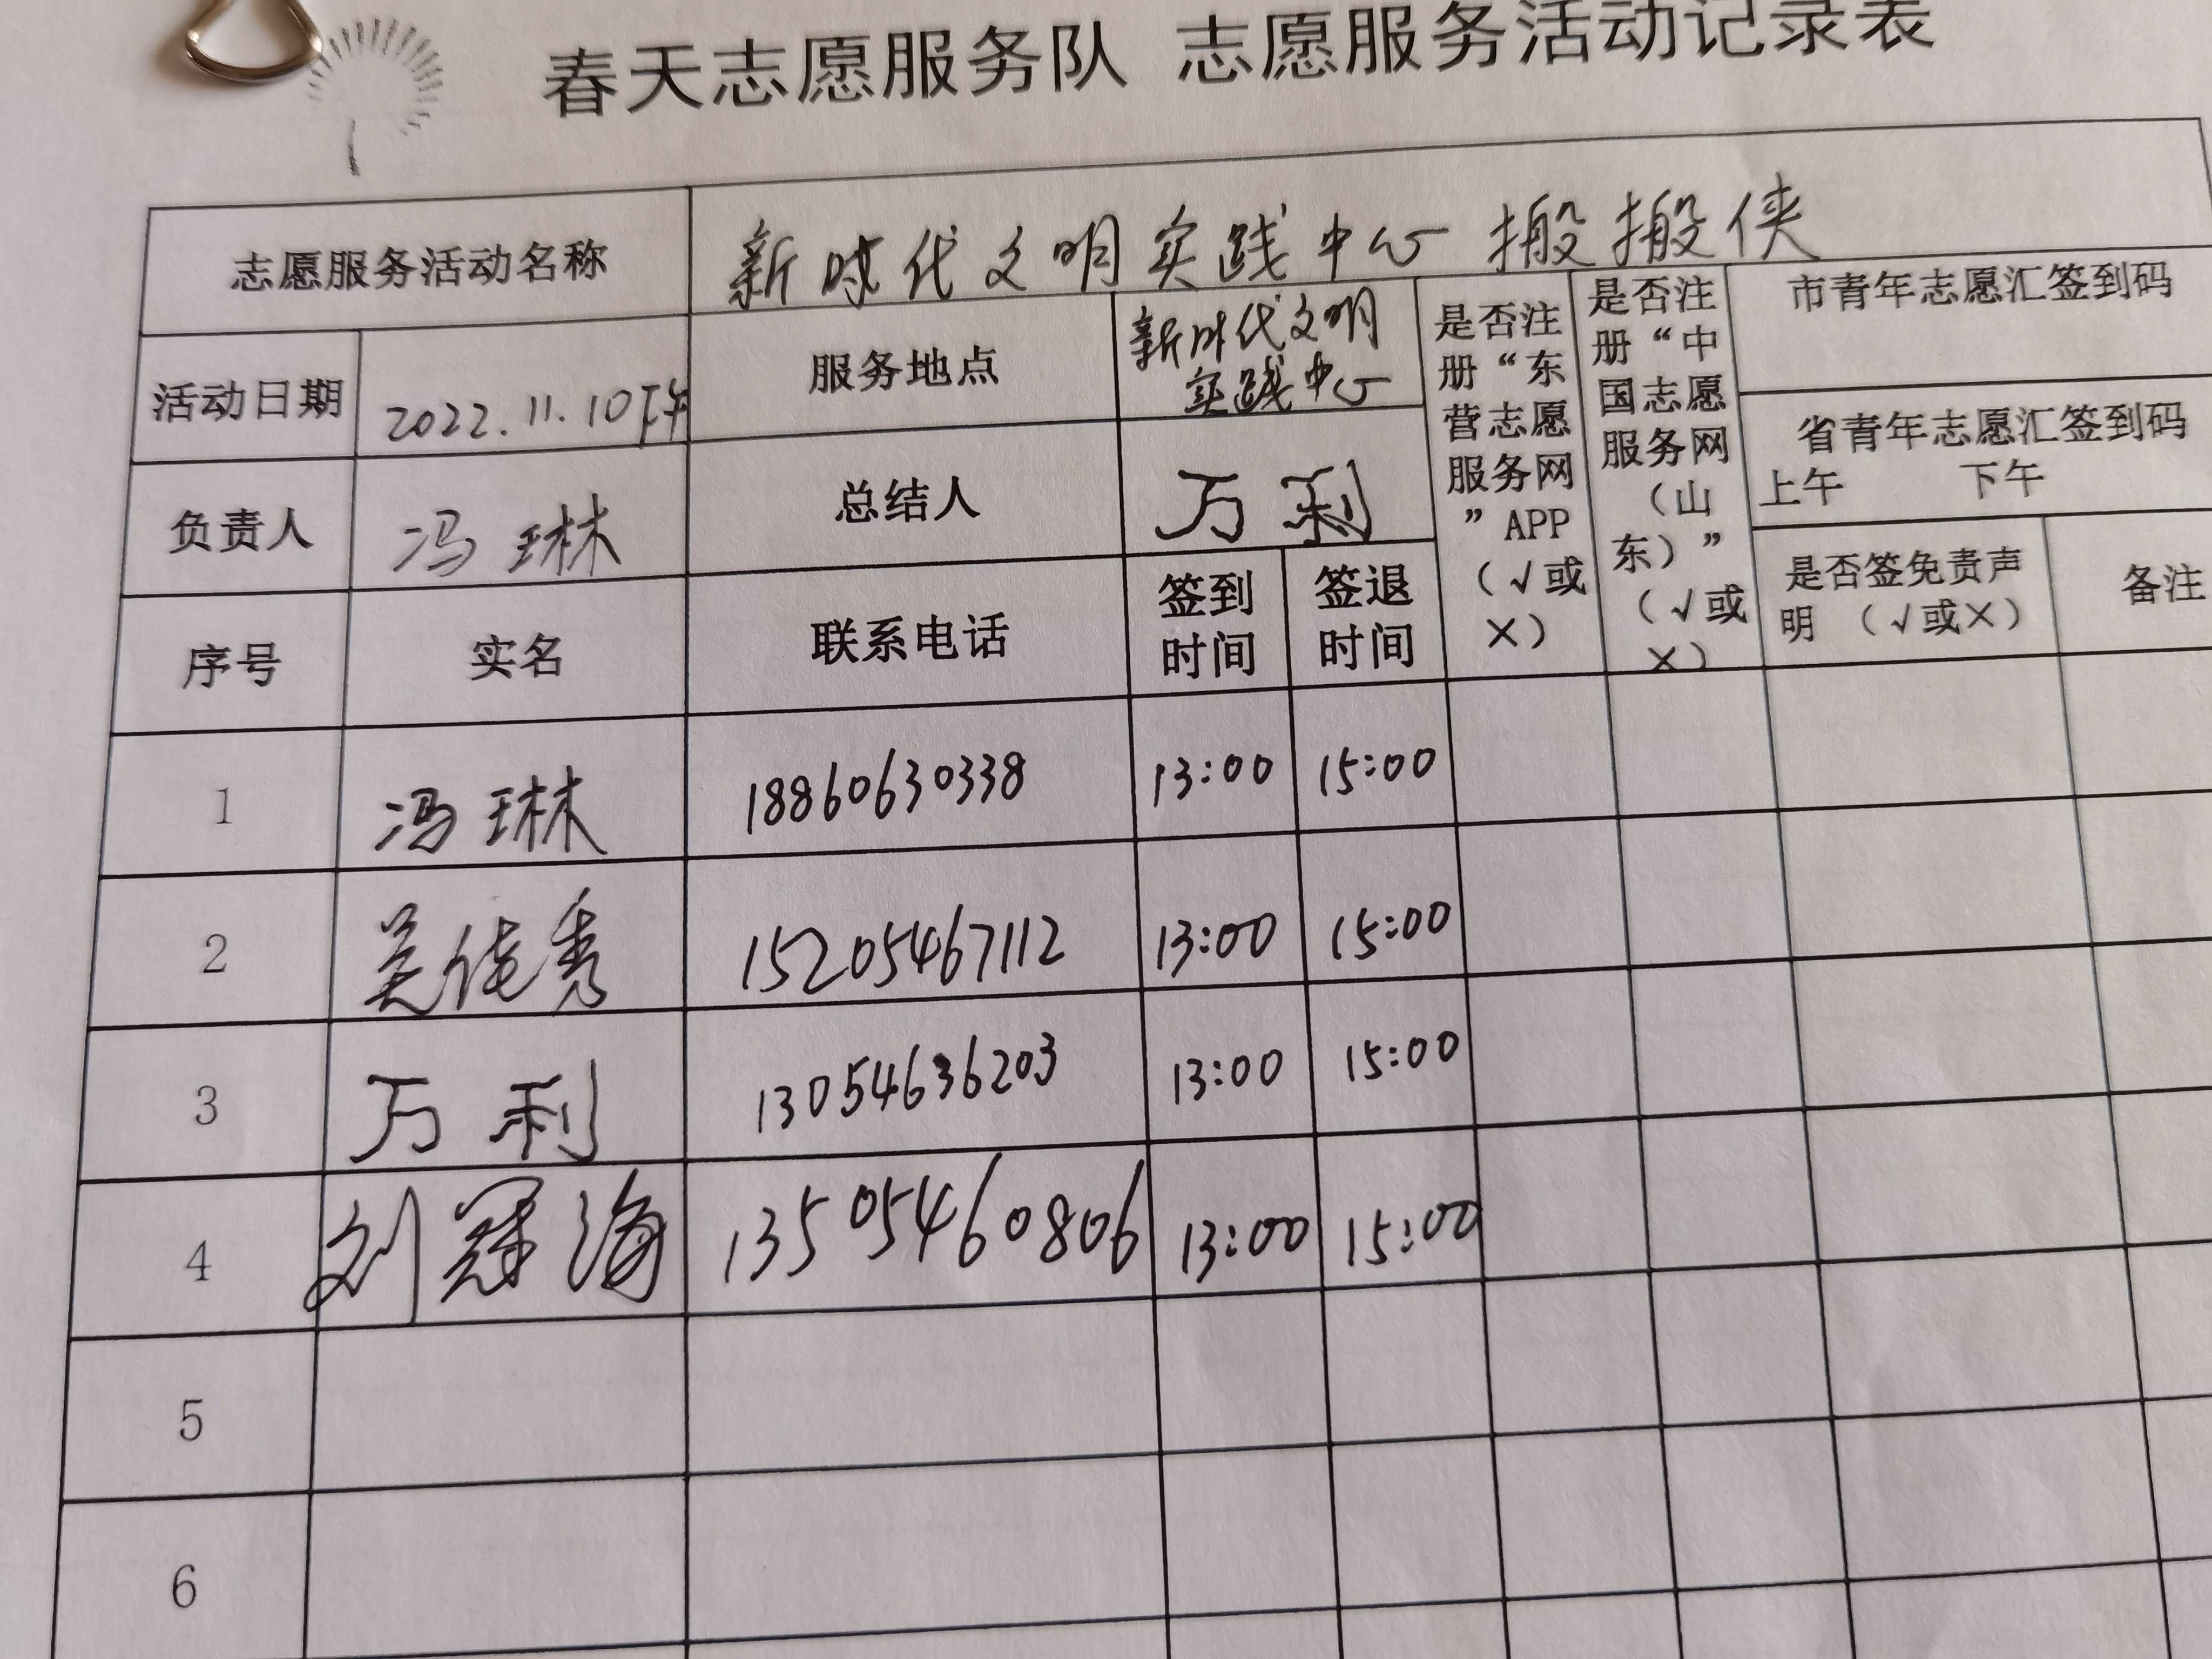 春天志愿服务队 志愿服务活动记录表
志愿服务活动名称 新时代文明实践中心 搬搬侠
活动日期 2022.11.10下午 服务地点 新时代文明
实践中心
是否注
册“东
营志愿
服务网
”APP
（√或
×）
是否注
册“中
国志愿
服务网
（山
东）”
（√或
×）
市青年志愿汇签到码
省青年志愿汇签到码
上午 下午
负责人 冯琳 总结人 万利
序号 实名 联系电话
签到
时间
签退
时间
是否签免责声
明 （√或×）
备注
1 冯琳 18860630338 13:00 15:00
2 吴佳秀 15205467112 13:00 15:00
3 万利 13054636203 13:00 15:00
4 刘冠海 13505460806 13:00 15:00
5
6